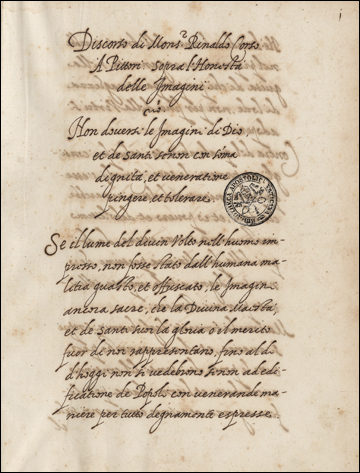 Discorso di Mons.re Rinaldo Corso
A Pittori sopra l'Honestà
delle Imagini
cioè
Non doversi le Imagini di Dio
et de santi se non con som̃a
dignità, et veneratione
pingere, et tolerare.
Se il lume del divin Volto nell'huomo im-
presso, non fosse stato dall'humana ma-
litia guasto, et offuscato, le Imagini
ancora sacre, che la Divina Maestà,
et de santi suoi la gloria ò il merito
fuor di noi rappresentano, fino al dì
d'hoggi non si vedebbono se non ad edi-
ficatione de Popoli con venerande ma-
niere per tutto degnamente espresse.